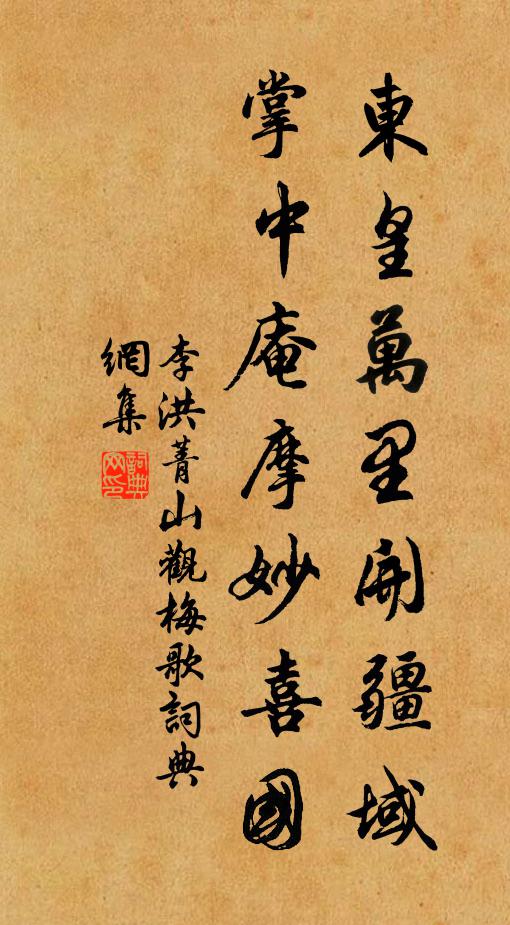 東皇萬里開疆域
掌中庵摩妙喜國
李洪菁山觀梅歌詞典
網集
詞典
网印